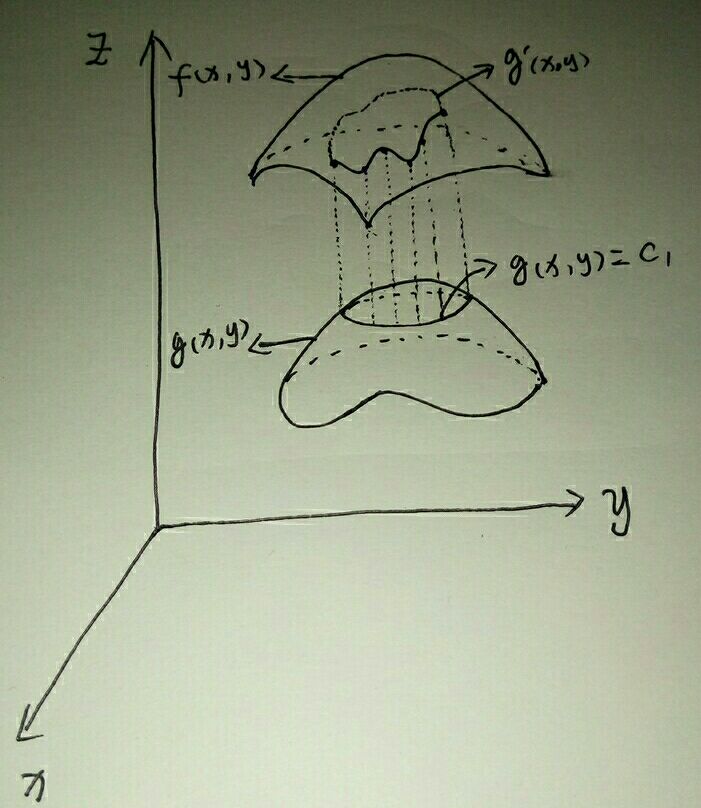 z
f(x,y)
g'(x,y)
g(x,y) = c₁
g(x,y)
y
x